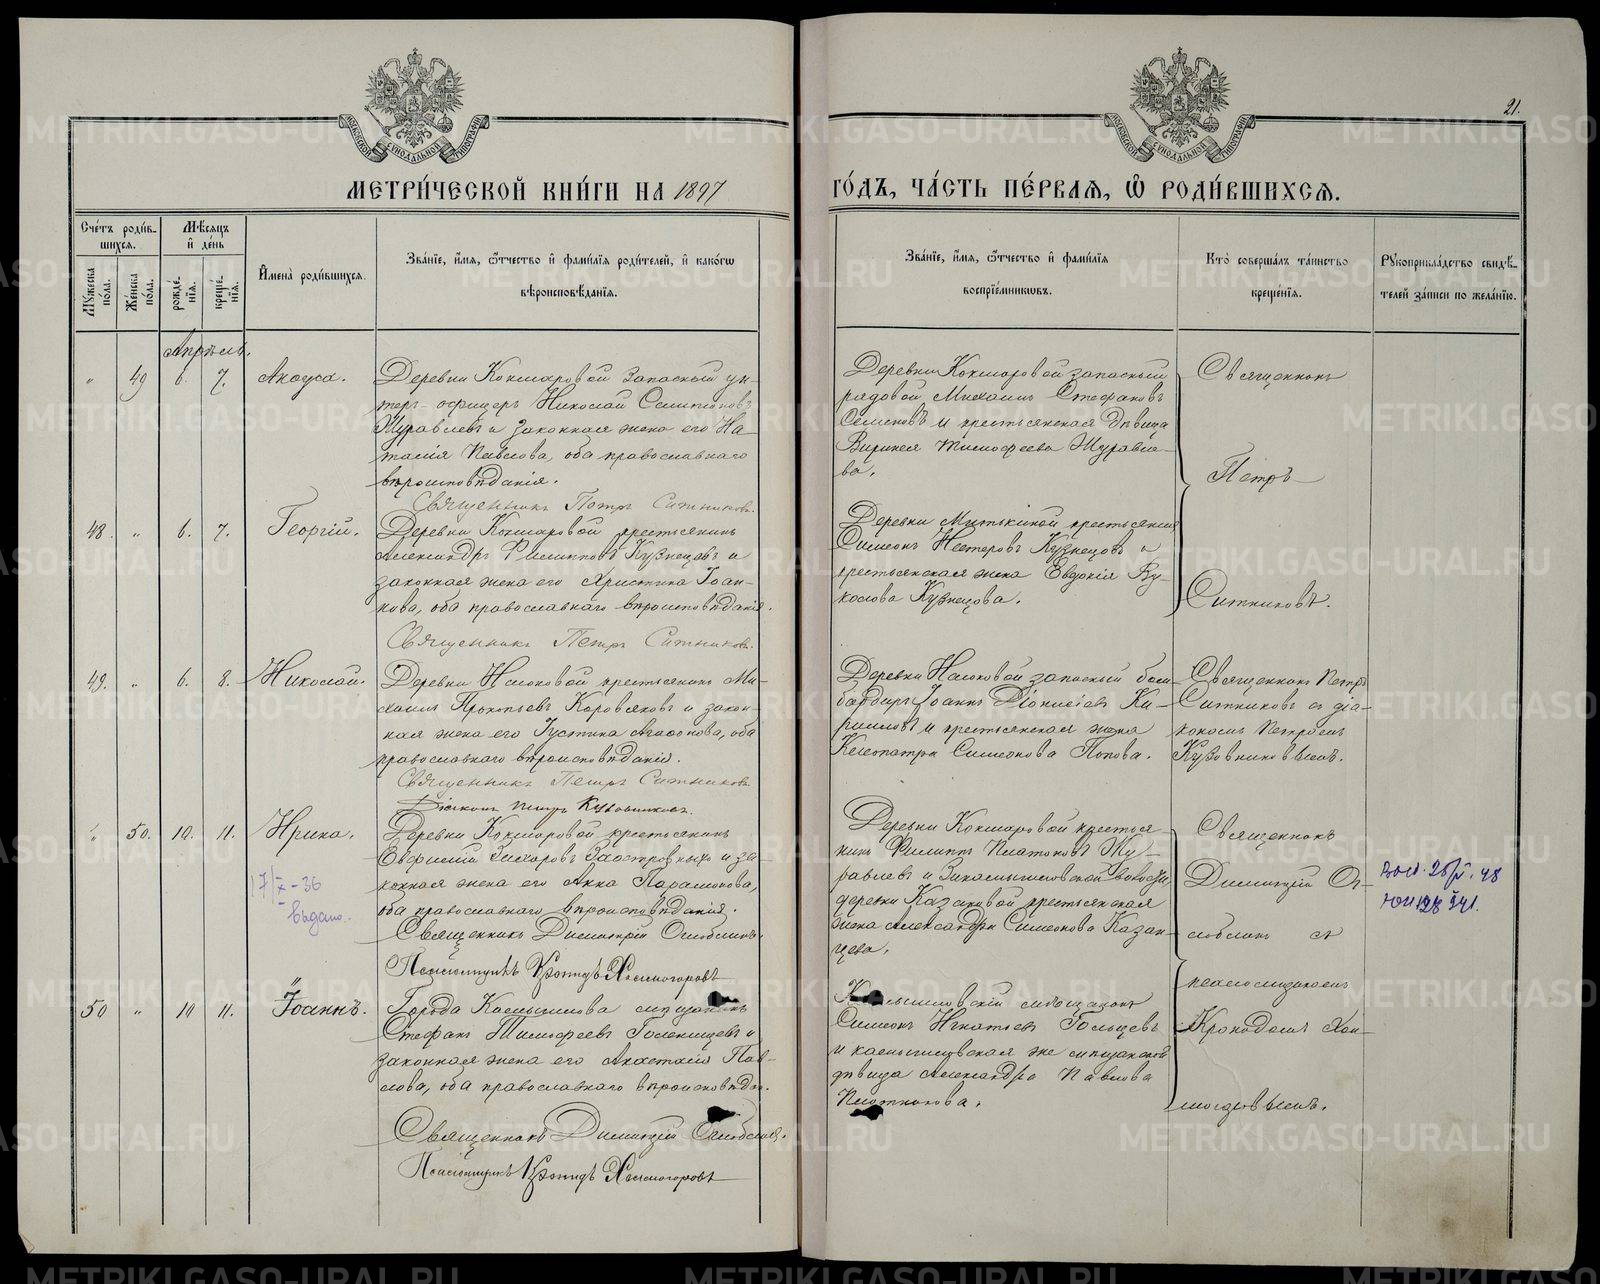 21.
МОСКОВСКОЙ СѴНОДАЛЬНОЙ ТИПОГРАФІИ
МОСКОВСКОЙ СѴНОДАЛЬНОЙ ТИПОГРАФІИ
МЕТРИ́ЧЕСКОЙ КНИ́ГИ НА 1897
ГО́ДЪ, ЧА́СТЬ ПЕ́РВАЯ, Ѡ҆ РОДИ́ВШИХСЯ.
Сче́тъ роди́в-
шихся.
Мꙋ́жеска по́ла.
Же́нска по́ла.
Мѣ́сяцъ
и҆ де́нь
рожде́-
нїя.
креще́-
нїя.
И҆мена̀ роди́вшихся.
Зва́нїе, и҆́мя, ѻ҆́тчество и҆ фами́лїя роди́телей, и҆ како́гѡ
вѣроисповѣ́данїя.
Зва́нїе, и҆́мя, ѻ҆́тчество и҆ фами́лїя
воспрїе́мникѡвъ.
Кто̀ соверша́лъ та́инство
креще́нїя.
Рꙋкоприкла́дство свидѣ́-
телей за́писи по жела́нїю.
Апрѣль.
" 49 6. 7. Аксуса.
Деревни Кокшаровой запасный ун-
теръ-офицеръ Николай
Журавлевъ и законная жена его На-
талія Павлова, оба православнаго
вѣроисповѣданія.
Священникъ Петръ Ситниковъ.
Деревни Кокшаровой запасный
рядовой Михаилъ Стефановъ
Семеновъ и крестьянская дѣвица
Виринея Тимофеева Журавле-
ва.
Священникъ
Петръ
Ситниковъ.
48. " 6. 7. Георгій.
Деревни Кокшаровой крестьянинъ
Александръ Филипповъ Кузнецовъ и
законная жена его Христина Іоан-
нова, оба православнаго вѣроисповѣданія.
Священникъ Петръ Ситниковъ.
Деревни Митькиной крестьянинъ
Симеонъ Несторовъ Кузнецовъ и
крестьянская жена Евдокія Ву-
колова Кузнецова.
49. " 6. 8. Николай.
Деревни Насоновой крестьянинъ Ми-
хаилъ Прокопьевъ Коровяковъ и закон-
ная жена его Іустина Агафонова, оба
православнаго вѣроисповѣданія.
Священникъ Петръ Ситниковъ
Діаконъ Петръ Кузовниковъ.
Деревни Насоновой запасный бом-
бардиръ Іоаннъ Діонисіевъ Ки-
рилловъ и крестьянская жена
Клеопатра Симеонова Попова.
Священникъ Петръ
Ситниковъ съ діа-
кономъ Петромъ
Кузовниковымъ.
" 50. 10. 11. Ирина.
17/X-36
выдано.
Деревни Кокшаровой крестьянинъ
Евфимій Захаровъ Заостровныхъ и за-
конная жена его Анна Парамонова,
оба православнаго вѣроисповѣданія.
Священникъ Димитрій Оглоблинъ
Псаломщикъ Кронидъ Холмогоровъ
Деревни Кокшаровой крестья-
нинъ Филиппъ Платоновъ Жу-
равлевъ и Закамышловской волости,
деревни Казаковой крестьянская
жена Александра Симеонова Казан-
цева.
Священникъ
Димитрій Ог-
лоблинъ съ
псаломщикомъ
Кронидомъ Хол-
могоровымъ.
50 " 10 11. Іоаннъ.
Города Камышлова мѣщанинъ
Стефанъ Тимофеевъ Голенищевъ и
законная жена его Анастасія Пав-
лова, оба православнаго вѣроисповѣдан.
Священникъ Димитрій Оглоблинъ.
Псаломщикъ Кронидъ Холмогоровъ
Камышловскій мѣщанинъ
Симеонъ Игнатьевъ Гольцевъ
и камышловская же мѣщанская
дѣвица Александра Павлова
Плотникова.
METRIKI.GASO-URAL.RU